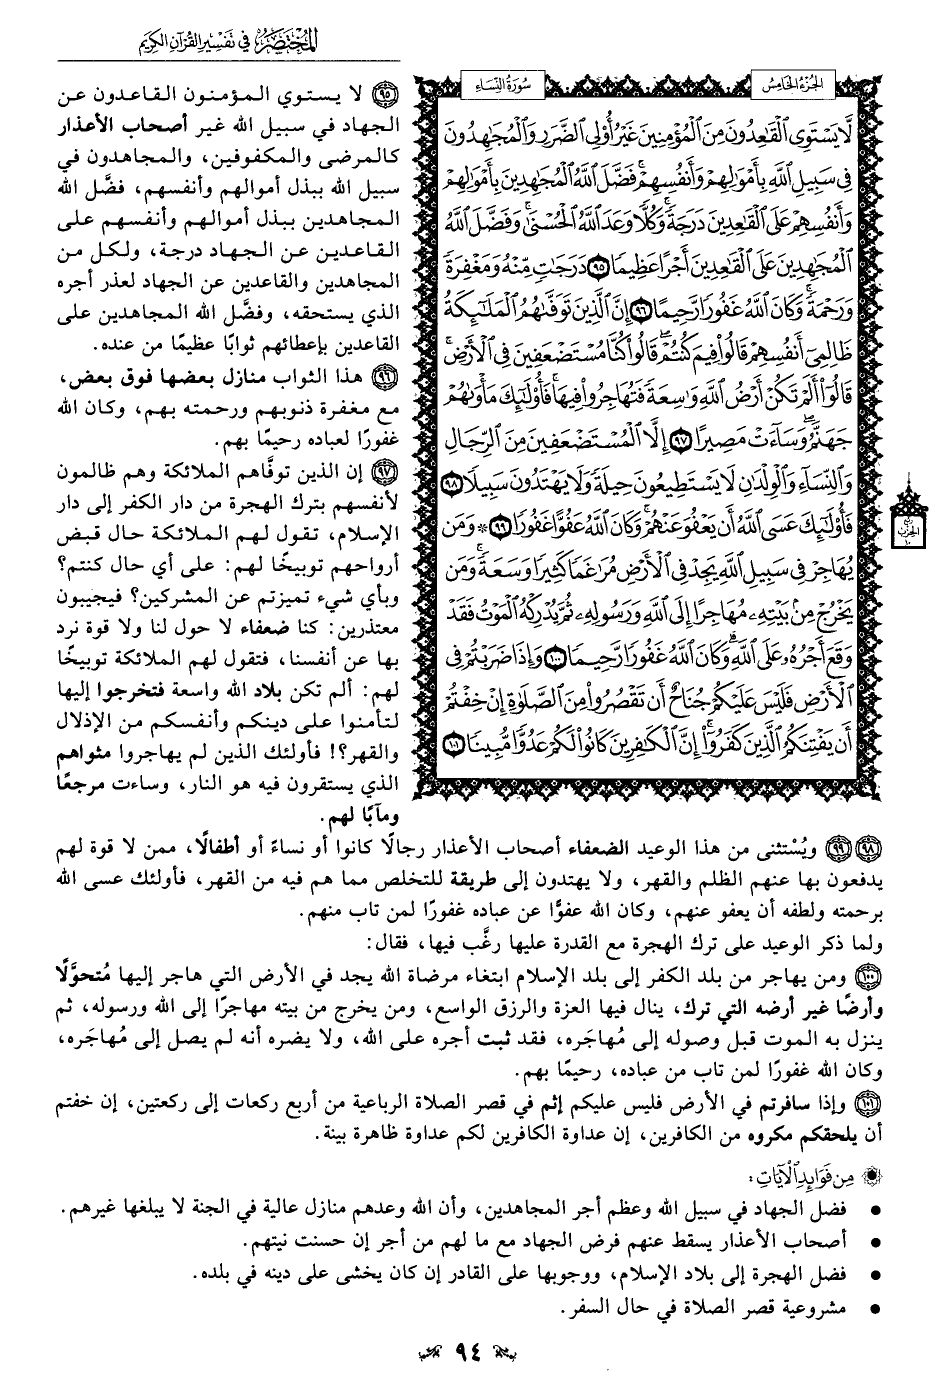 المختصر في تفسير القرآن الكريم
الجزء الخامس
سورة النساء
لَّا يَسْتَوِى ٱلْقَٰعِدُونَ مِنَ ٱلْمُؤْمِنِينَ غَيْرُ أُو۟لِى ٱلضَّرَرِ وَٱلْمُجَٰهِدُونَ
فِى سَبِيلِ ٱللَّهِ بِأَمْوَٰلِهِمْ وَأَنفُسِهِمْ ۚ فَضَّلَ ٱللَّهُ ٱلْمُجَٰهِدِينَ بِأَمْوَٰلِهِمْ
وَأَنفُسِهِمْ عَلَى ٱلْقَٰعِدِينَ دَرَجَةً ۚ وَكُلًّا وَعَدَ ٱللَّهُ ٱلْحُسْنَىٰ ۚ وَفَضَّلَ ٱللَّهُ
ٱلْمُجَٰهِدِينَ عَلَى ٱلْقَٰعِدِينَ أَجْرًا عَظِيمًا ٩٥ دَرَجَٰتٍ مِّنْهُ وَمَغْفِرَةً
وَرَحْمَةً ۚ وَكَانَ ٱللَّهُ غَفُورًا رَّحِيمًا ٩٦ إِنَّ ٱلَّذِينَ تَوَفَّىٰهُمُ ٱلْمَلَٰٓئِكَةُ
ظَالِمِىٓ أَنفُسِهِمْ قَالُوا۟ فِيمَ كُنتُمْ ۖ قَالُوا۟ كُنَّا مُسْتَضْعَفِينَ فِى ٱلْأَرْضِ ۚ
قَالُوٓا۟ أَلَمْ تَكُنْ أَرْضُ ٱللَّهِ وَٰسِعَةً فَتُهَاجِرُوا۟ فِيهَا ۚ فَأُو۟لَٰٓئِكَ مَأْوَىٰهُمْ
جَهَنَّمُ ۖ وَسَآءَتْ مَصِيرًا ٩٧ إِلَّا ٱلْمُسْتَضْعَفِينَ مِنَ ٱلرِّجَالِ
وَٱلنِّسَآءِ وَٱلْوِلْدَٰنِ لَا يَسْتَطِيعُونَ حِيلَةً وَلَا يَهْتَدُونَ سَبِيلًا ٩٨
فَأُو۟لَٰٓئِكَ عَسَى ٱللَّهُ أَن يَعْفُوَ عَنْهُمْ ۚ وَكَانَ ٱللَّهُ عَفُوًّا غَفُورًا ٩٩ * وَمَن
يُهَاجِرْ فِى سَبِيلِ ٱللَّهِ يَجِدْ فِى ٱلْأَرْضِ مُرَٰغَمًا كَثِيرًا وَسَعَةً ۚ وَمَن
يَخْرُجْ مِنۢ بَيْتِهِۦ مُهَاجِرًا إِلَى ٱللَّهِ وَرَسُولِهِۦ ثُمَّ يُدْرِكْهُ ٱلْمَوْتُ فَقَدْ
وَقَعَ أَجْرُهُۥ عَلَى ٱللَّهِ ۗ وَكَانَ ٱللَّهُ غَفُورًا رَّحِيمًا ١٠٠ وَإِذَا ضَرَبْتُمْ فِى
ٱلْأَرْضِ فَلَيْسَ عَلَيْكُمْ جُنَاحٌ أَن تَقْصُرُوا۟ مِنَ ٱلصَّلَوٰةِ إِنْ خِفْتُمْ
أَن يَفْتِنَكُمُ ٱلَّذِينَ كَفَرُوٓا۟ ۚ إِنَّ ٱلْكَٰفِرِينَ كَانُوا۟ لَكُمْ عَدُوًّا مُّبِينًا ١٠١
ربع
الحزب
١٠
٩٥ لا يستوي المؤمنون القاعدون عن
الجهاد في سبيل الله غير أصحاب الأعذار
كالمرضى والمكفوفين، والمجاهدون في
سبيل الله ببذل أموالهم وأنفسهم، فضَّل الله
المجاهدين ببذل أموالهم وأنفسهم على
القاعدين عن الجهاد درجة، ولكل من
المجاهدين والقاعدين عن الجهاد لعذر أجره
الذي يستحقه، وفضَّل الله المجاهدين على
القاعدين بإعطائهم ثوابًا عظيمًا من عنده.
٩٦ هذا الثواب منازل بعضها فوق بعض،
مع مغفرة ذنوبهم ورحمته بهم، وكان الله
غفورًا لعباده رحيمًا بهم.
٩٧ إن الذين توفَّاهم الملائكة وهم ظالمون
لأنفسهم بترك الهجرة من دار الكفر إلى دار
الإسلام، تقول لهم الملائكة حال قبض
أرواحهم توبيخًا لهم: على أي حال كنتم؟
وبأي شيء تميزتم عن المشركين؟ فيجيبون
معتذرين: كنا ضعفاء لا حول لنا ولا قوة نرد
بها عن أنفسنا، فتقول لهم الملائكة توبيخًا
لهم: ألم تكن بلاد الله واسعة فتخرجوا إليها
لتأمنوا على دينكم وأنفسكم من الإذلال
والقهر؟! فأولئك الذين لم يهاجروا مثواهم
الذي يستقرون فيه هو النار، وساءت مرجعًا
ومآبًا لهم.
٩٨ ٩٩ ويُسْتثنى من هذا الوعيد الضعفاء أصحاب الأعذار رجالًا كانوا أو نساءً أو أطفالًا، ممن لا قوة لهم
يدفعون بها عنهم الظلم والقهر، ولا يهتدون إلى طريقة للتخلص مما هم فيه من القهر، فأولئك عسى الله
برحمته ولطفه أن يعفو عنهم، وكان الله عفوًّا عن عباده غفورًا لمن تاب منهم.
ولما ذكر الوعيد على ترك الهجرة مع القدرة عليها رغَّب فيها، فقال:
١٠٠ ومن يهاجر من بلد الكفر إلى بلد الإسلام ابتغاء مرضاة الله يجد في الأرض التي هاجر إليها مُتحوَّلًا
وأرضًا غير أرضه التي ترك، ينال فيها العزة والرزق الواسع، ومن يخرج من بيته مهاجرًا إلى الله ورسوله، ثم
ينزل به الموت قبل وصوله إلى مُهاجَره، فقد ثبت أجره على الله، ولا يضره أنه لم يصل إلى مُهاجَره،
وكان الله غفورًا لمن تاب من عباده، رحيمًا بهم.
١٠١ وإذا سافرتم في الأرض فليس عليكم إثم في قصر الصلاة الرباعية من أربع ركعات إلى ركعتين، إن خفتم
أن يلحقكم مكروه من الكافرين، إن عداوة الكافرين لكم عداوة ظاهرة بينة.
من فوائد الآيات:
• فضل الجهاد في سبيل الله وعظم أجر المجاهدين، وأن الله وعدهم منازل عالية في الجنة لا يبلغها غيرهم.
• أصحاب الأعذار يسقط عنهم فرض الجهاد مع ما لهم من أجر إن حسنت نيتهم.
• فضل الهجرة إلى بلاد الإسلام، ووجوبها على القادر إن كان يخشى على دينه في بلده.
• مشروعية قصر الصلاة في حال السفر.
٩٤